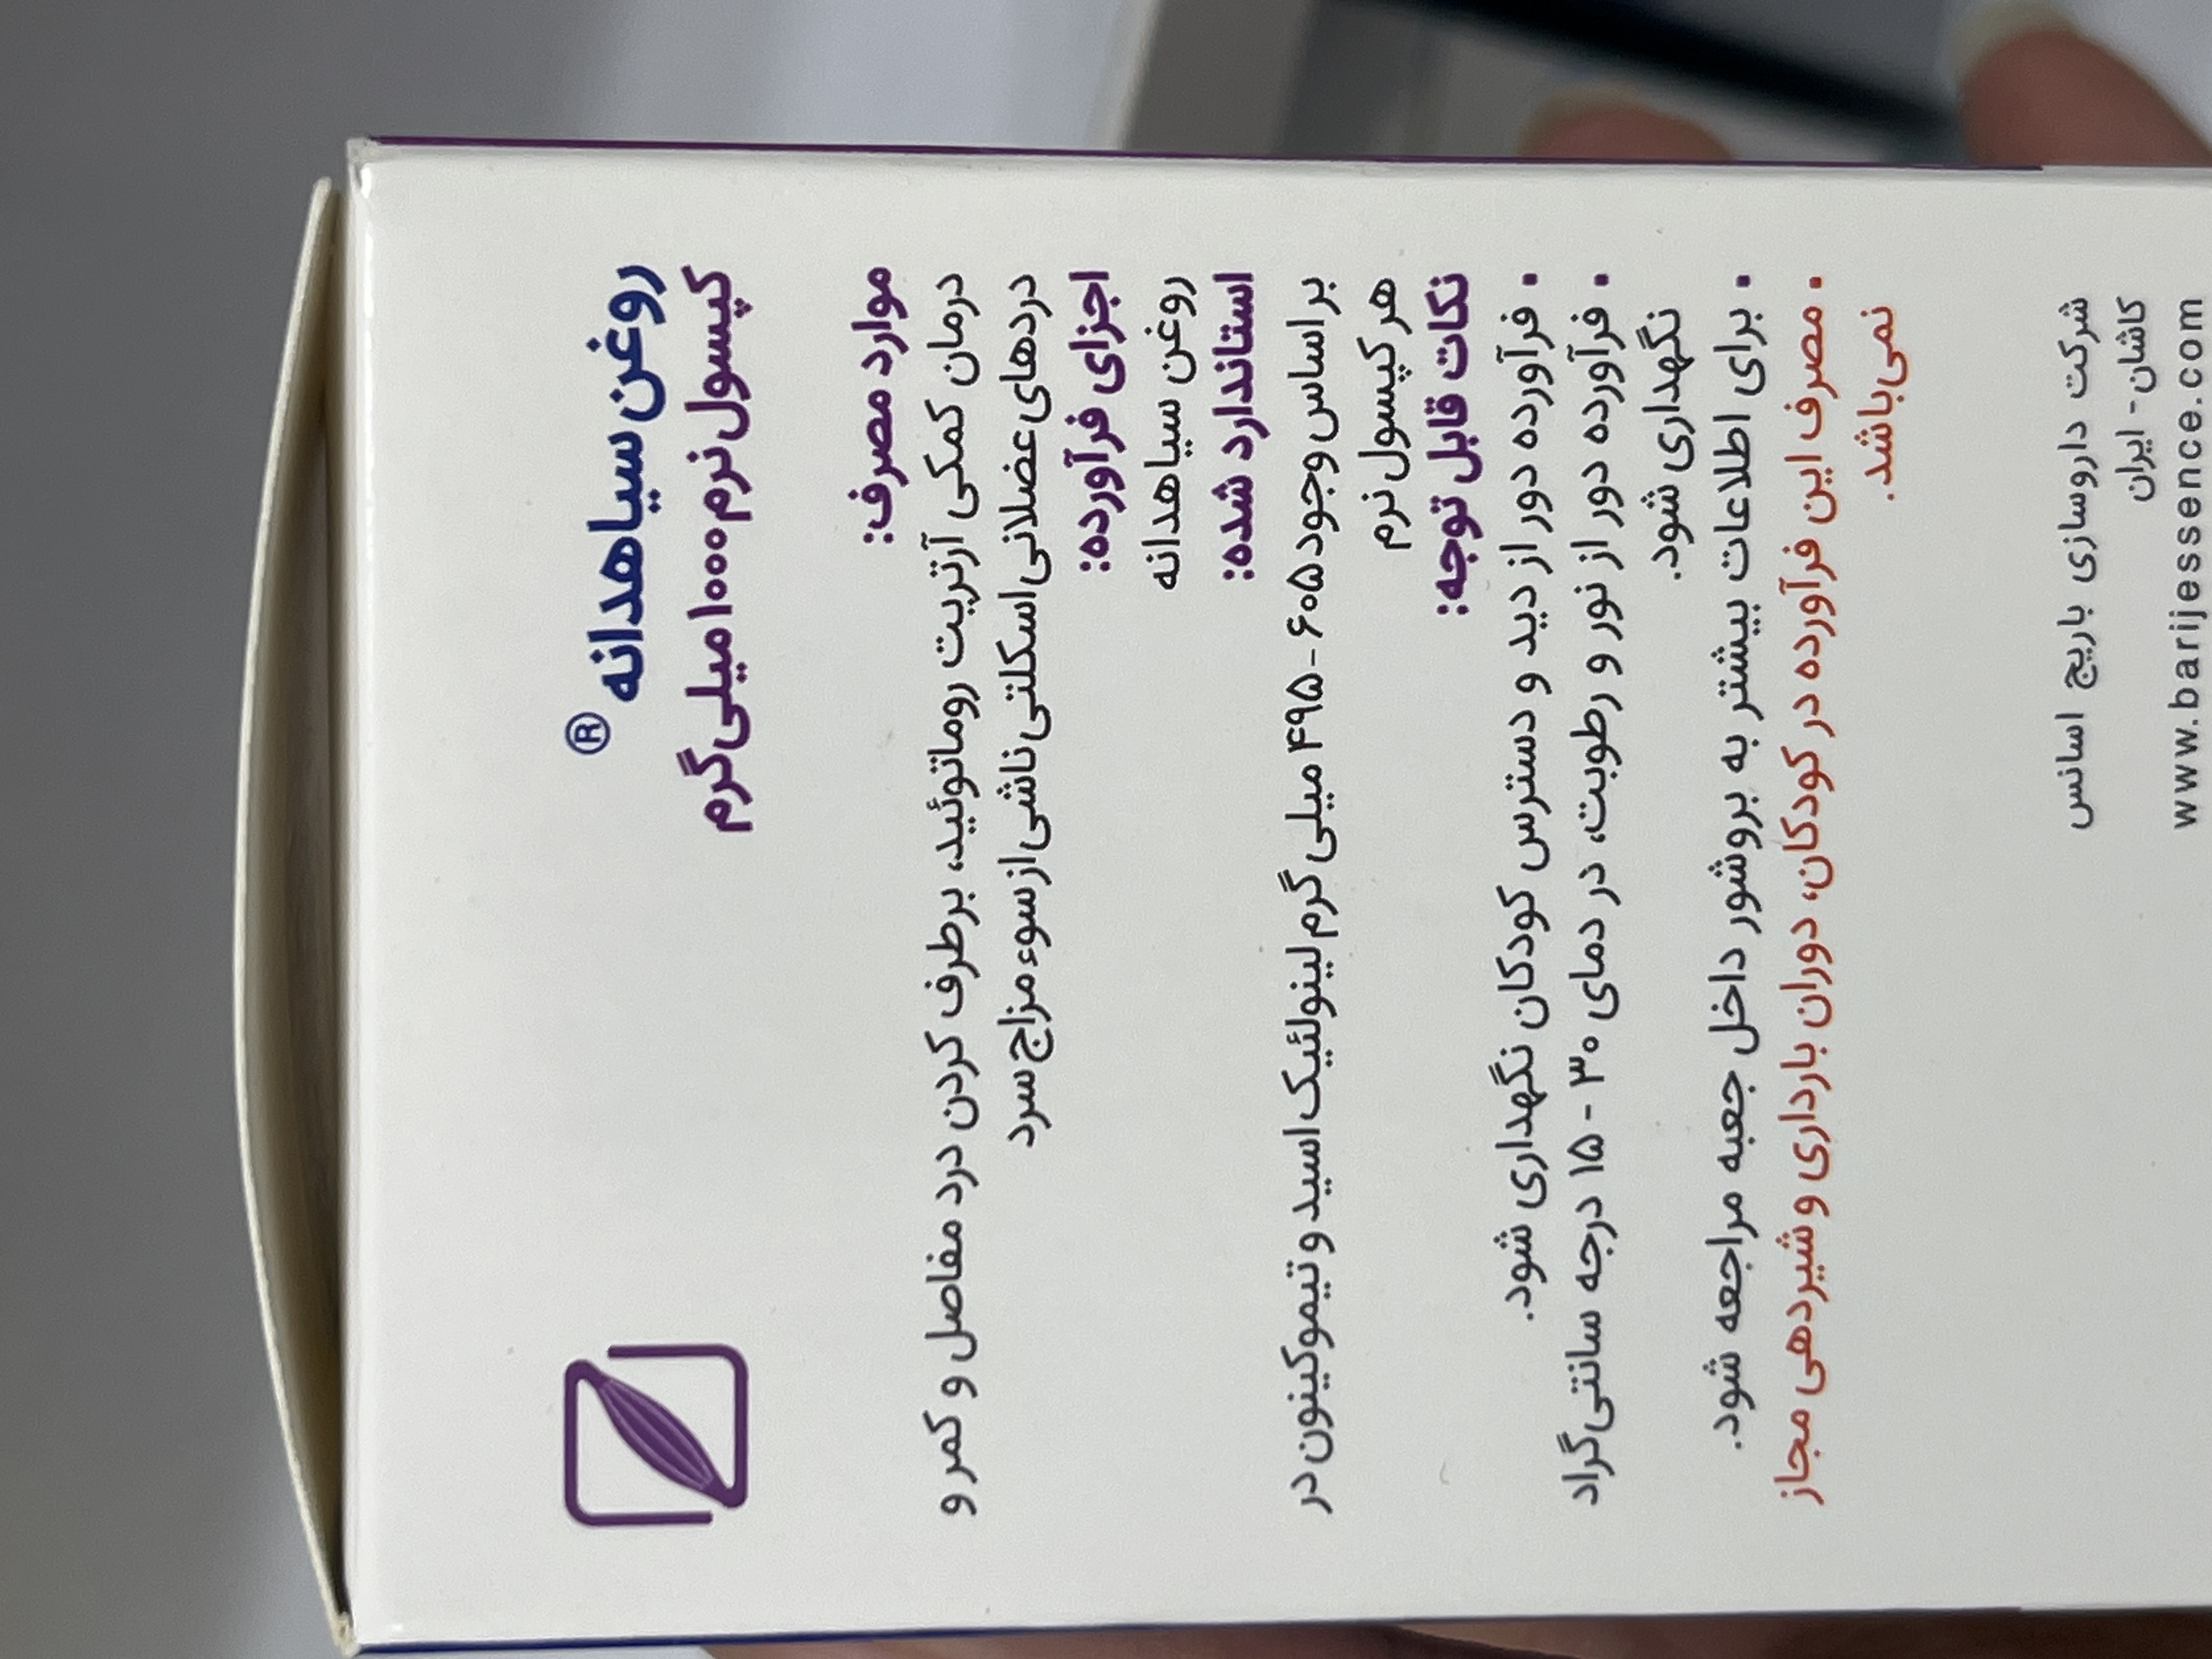 روغن سیاهدانه®
کپسول نرم ۱۰۰۰ میلی‌گرم
موارد مصرف:
درمان کمکی آرتریت روماتوئید، برطرف کردن درد مفاصل و کمر و
دردهای عضلانی اسکلتی ناشی از سوء مزاج سرد
اجزای فرآورده:
روغن سیاهدانه
استاندارد شده:
بر اساس وجود ۶۰۵ - ۴۹۵ میلی گرم لینولئیک اسید و تیموکینون در
هر کپسول نرم
نکات قابل توجه:
• فرآورده دور از دید و دسترس کودکان نگهداری شود.
• فرآورده دور از نور و رطوبت، در دمای ۳۰ - ۱۵ درجه سانتی‌گراد
نگهداری شود.
• برای اطلاعات بیشتر به بروشور داخل جعبه مراجعه شود.
• مصرف این فرآورده در کودکان، دوران بارداری و شیردهی مجاز
نمی‌باشد.
شرکت داروسازی باریج اسانس
کاشان - ایران
www.barijessence.com